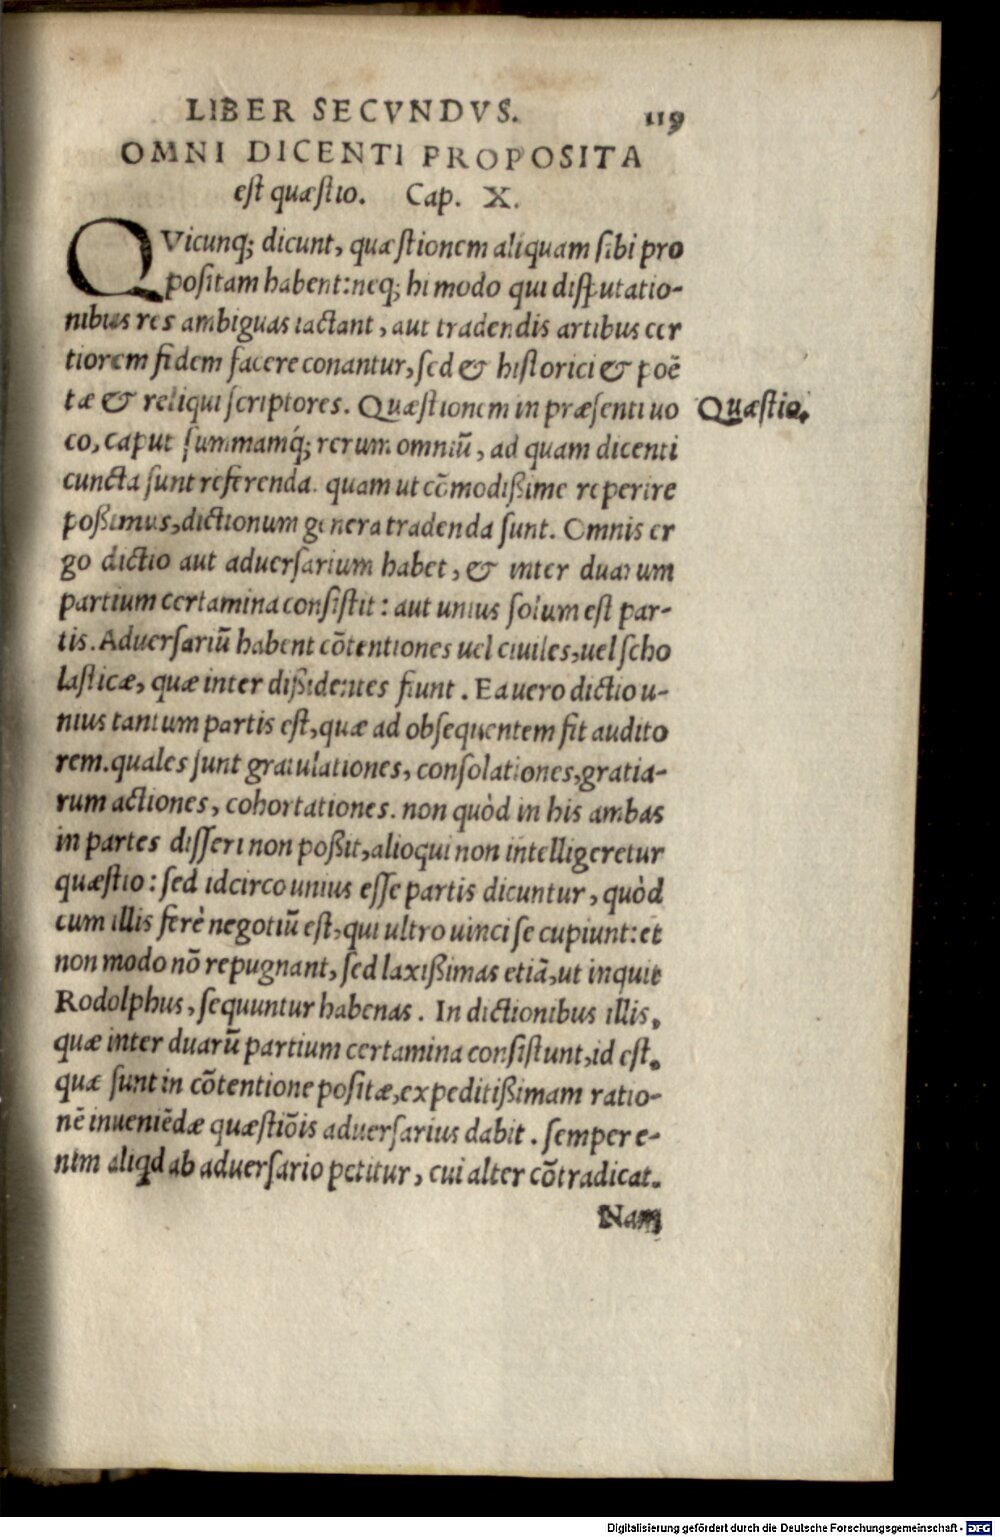 LIBER SECVNDVS. 119
OMNI DICENTI PROPOSITA
est quæstio. Cap. X.
QVicunq; dicunt, quæstionem aliquam sibi pro
positam habent: neq; hi modo qui disputatio-
nibus res ambiguas iactant, aut tradendis artibus cer
tiorem fidem facere conantur, sed & historici & poē
tæ & reliqui scriptores. Quæstionem in præsenti uo
Quæstio.
co, caput summamq́; rerum omniū, ad quam dicenti
cuncta sunt referenda. quam ut cōmodißime reperire
poßimus, dictionum genera tradenda sunt. Omnis er
go dictio aut aduersarium habet, & inter duarum
partium certamina consistit: aut unius solum est par-
tis. Aduersariū habent cōtentiones uel ciuiles, uel scho
lasticæ, quæ inter dißidentes fiunt. Ea uero dictio u-
nius tantum partis est, quæ ad obsequentem fit audito
rem. quales sunt gratulationes, consolationes, gratia-
rum actiones, cohortationes. non quòd in his ambas
in partes disseri non poßit, alioqui non intelligeretur
quæstio: sed idcirco unius esse partis dicuntur, quòd
cum illis ferè negotiū est, qui ultro uinci se cupiunt: et
non modo nō repugnant, sed laxißimas etiā, ut inquit
Rodolphus, sequuntur habenas. In dictionibus illis,
quæ inter duarū partium certamina consistunt, id est,
quæ sunt in cōtentione positæ, expeditißimam ratio-
nē inueniēdæ quæstiōis aduersarius dabit. semper e-
nim aliqd ab aduersario petitur, cui alter cōtradicat.
Nam
Digitalisierung gefördert durch die Deutsche Forschungsgemeinschaft - DFG